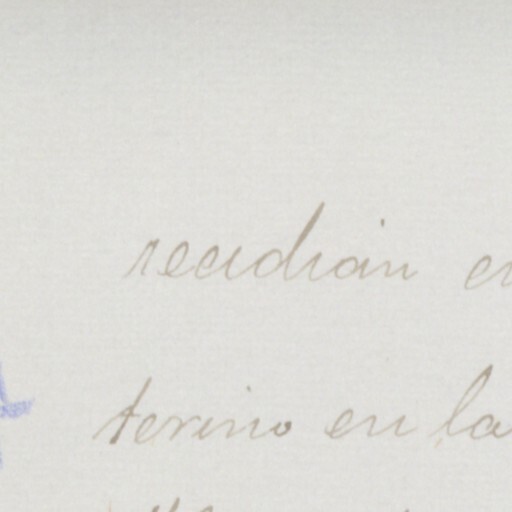 recidian en
terino en la